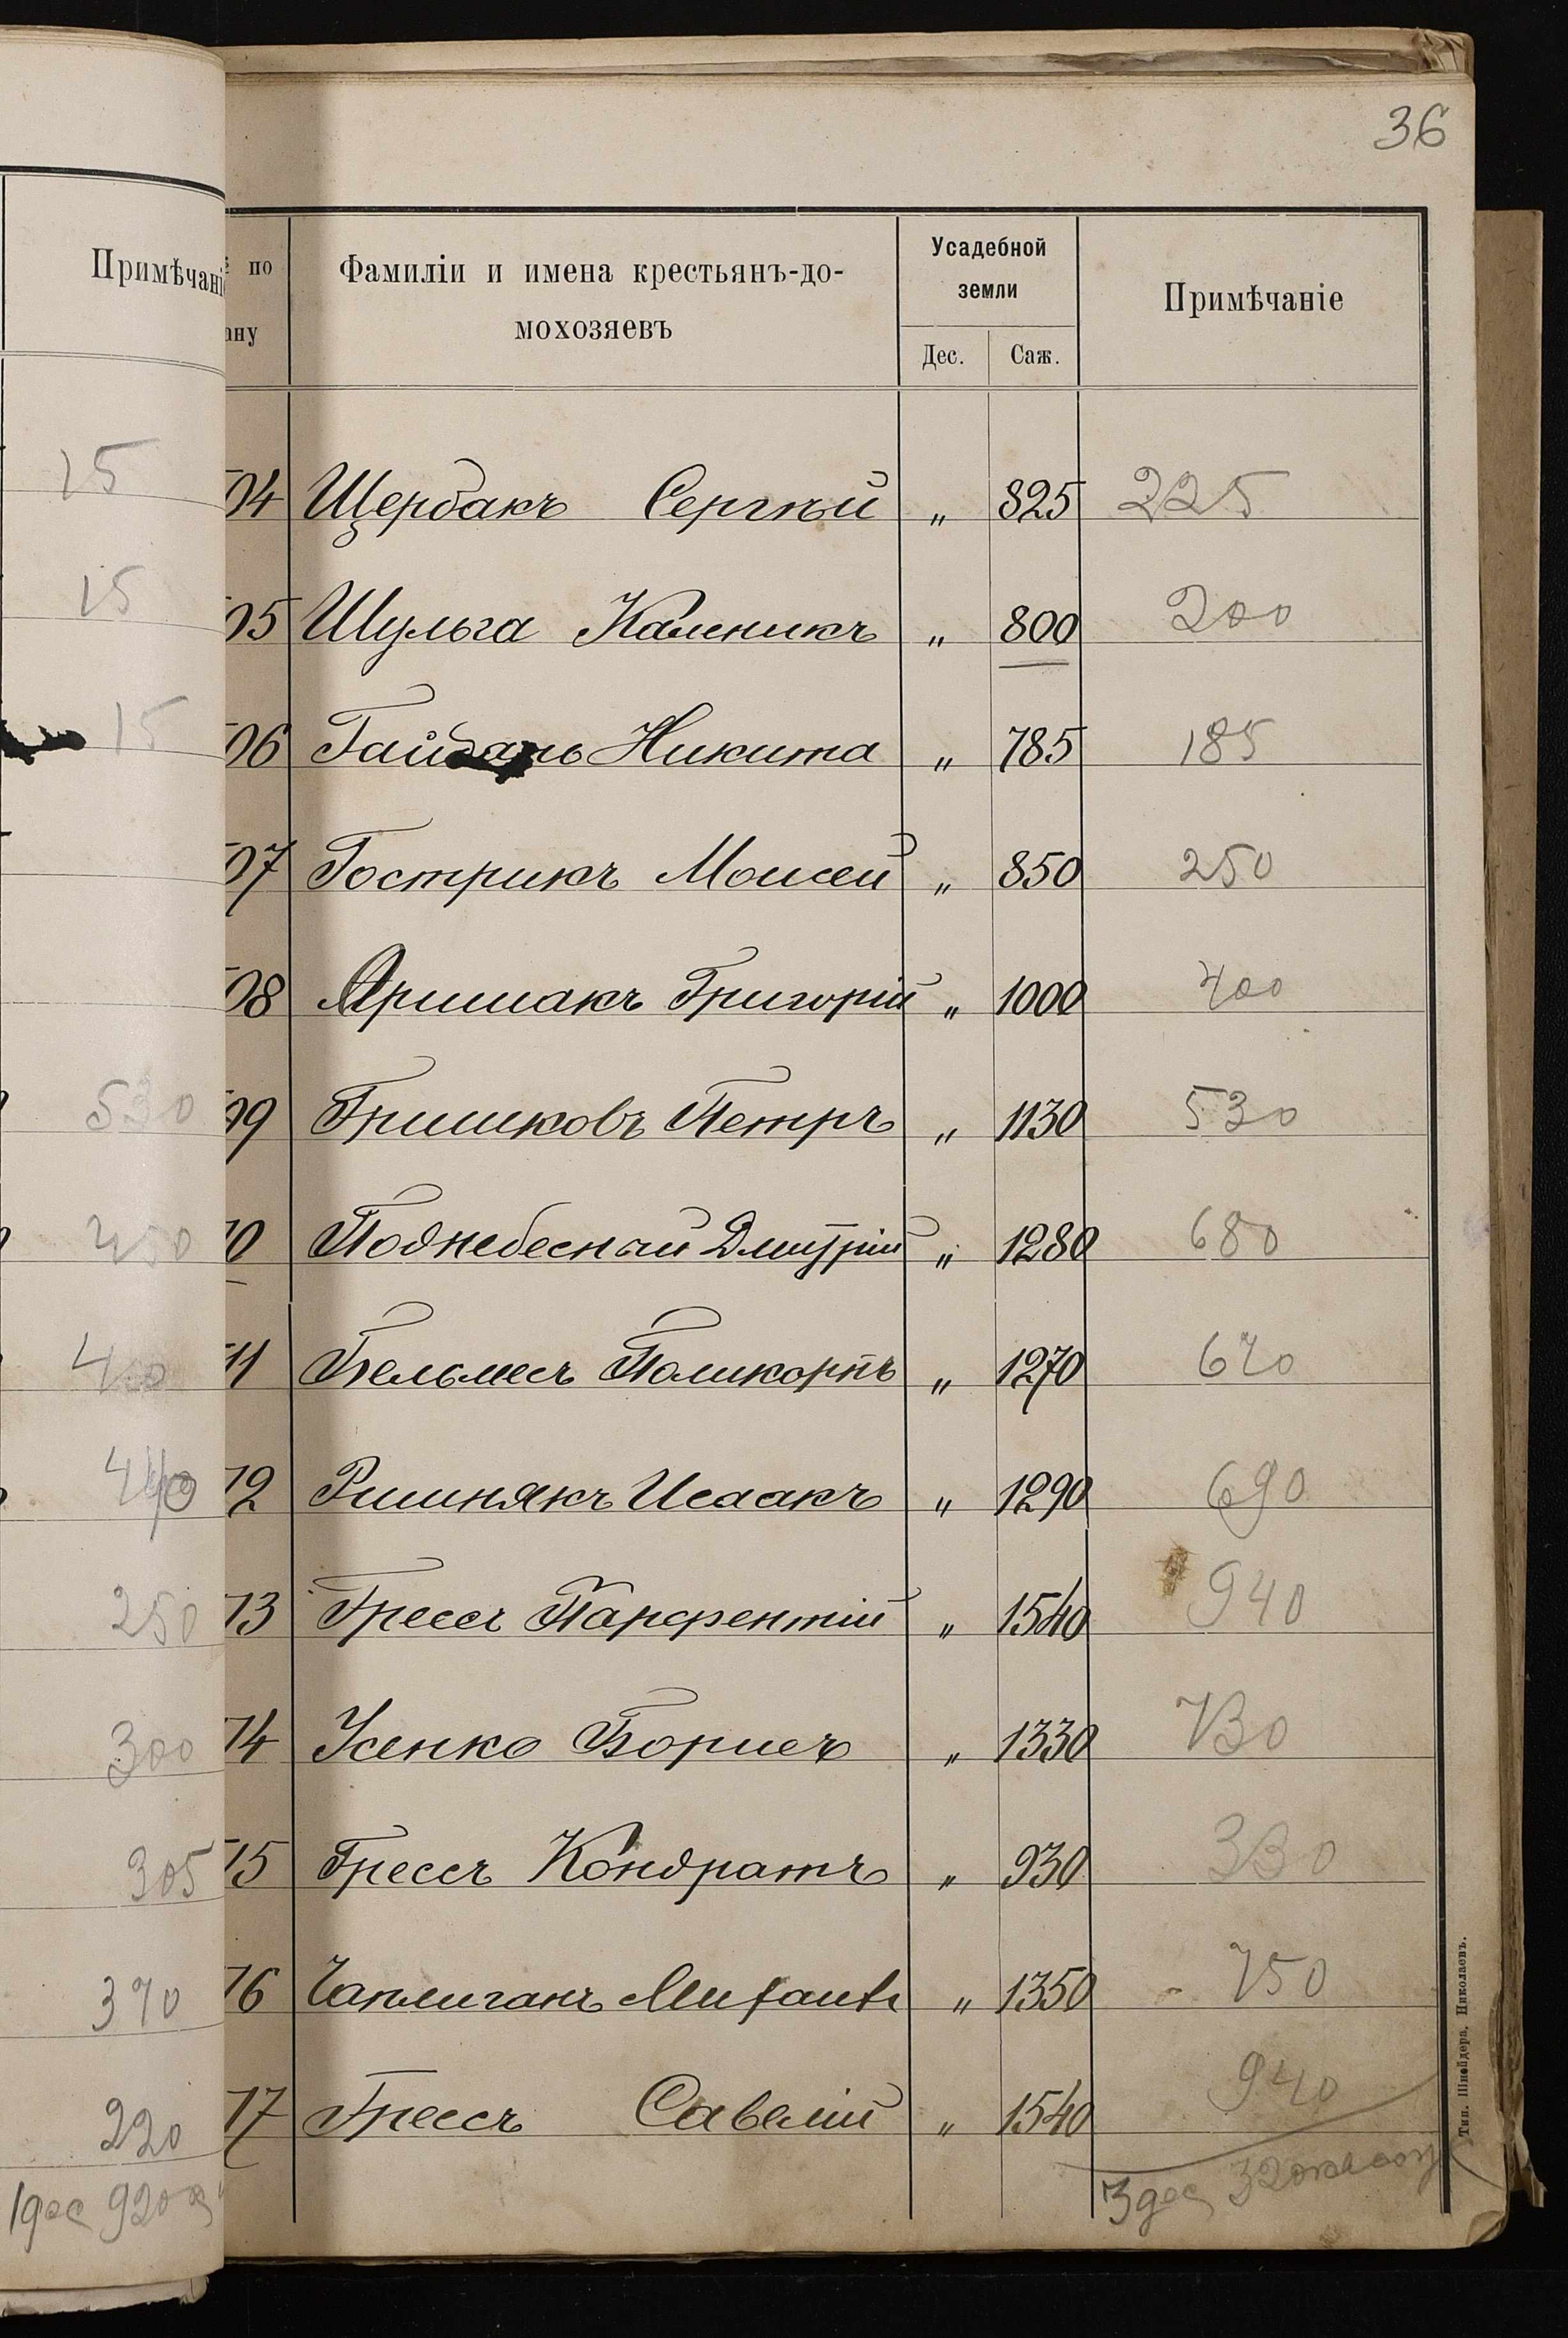 36
Примѣчані
15
15
15
530
450
400
440
250
300
305
370
220
1 дес 920
по
ану
Фамиліи и имена крестьянъ-до-
мохозяевъ
Усадебной
земли
Дес. Саж.
Примѣчаніе
04 Щербакъ Сергѣй „ 825 225
05 Шульга Каленикъ „ 800 200
06 Гайдарь Никита „ 785 185
07 Гострикъ Моисей „ 850 250
08 Яришакъ Григорій „ 1000 400
09 Гришковъ Петръ „ 1130 530
10 Поднебесный Дмитрій „ 1280 680
11 Бельмесъ Поликарпъ „ 1270 670
12 Ришнякъ Исаакъ „ 1290 690
13 Грессъ Парфентій „ 1540 940
14 Усенко Борисъ „ 1330 730
15 Грессъ Кондратъ „ 930 330
16 Чаплиганъ Михаилъ „ 1350 - 750
17 Грессъ Савелій „ 1540 940
3 дес 320
Тип. Шнейдера, Николаевъ.